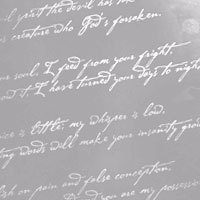 spirit the devil has
creature who God's forsaken.
soul. I feed from your fright
I have turned your days to night
is little; my whisper is low,
words will make your insanity grow
on pain and false conception.
you are my possession